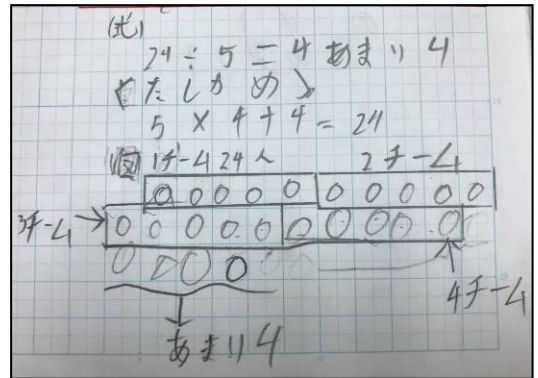 (式)
24÷5=4あまり4
〈たしかめ〉
5×4+4=24
(図) 1チーム 24人 2チーム
3チーム
4チーム
あまり4